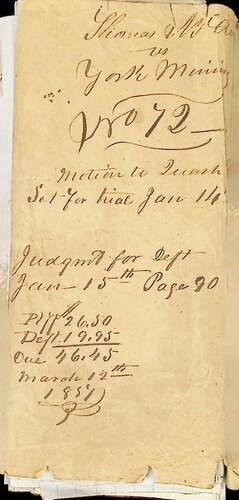 Thomas &
vs
York Mining
No 72
Motion to Quash
Set for trial Jan 14
Judgmt for Deft
Jan 15th Page 90
Plff 26.50
Deft 19.95
Due 46.45
March 12th
1857